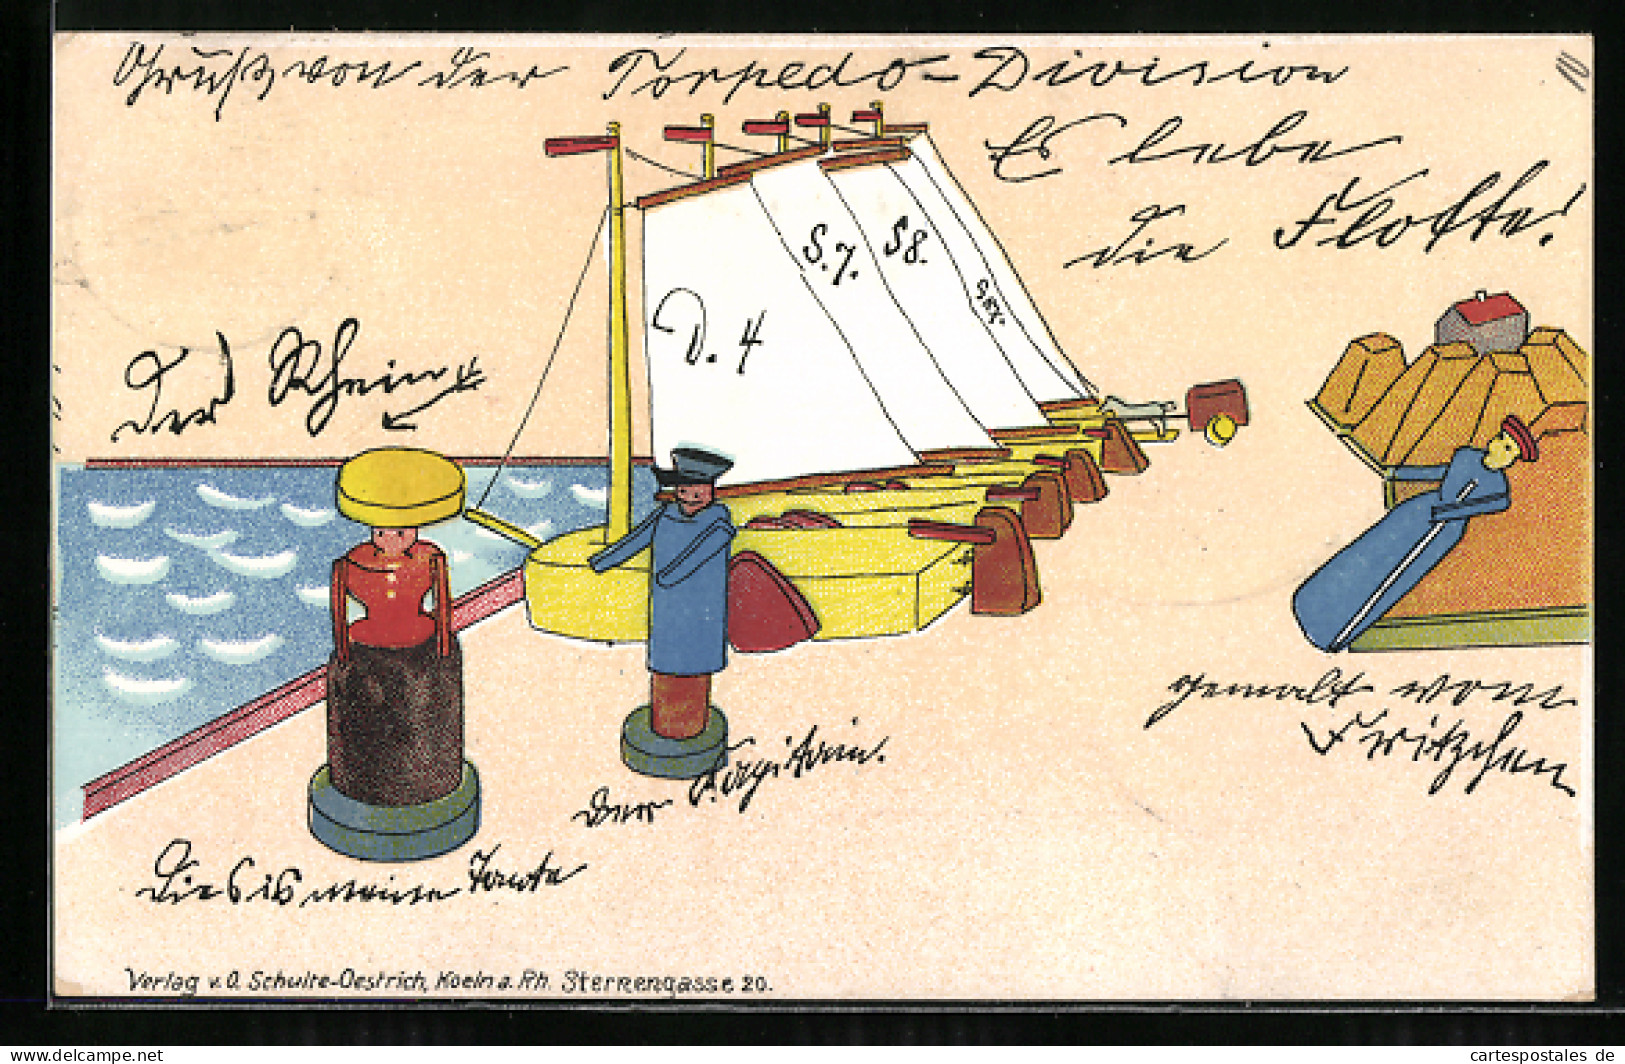 Gruß von der Torpedo-Division
Es lebe
die Flotte!
D. 4
S. 7.
S 8.
Der Rhein
gemalt vom
Fritzchen
Der Kapitain.
Dies is meine Tante
Verlag v. O. Schulte-Oestrich, Koeln a. Rh. Sternengasse 20.
www.delcampe.net
cartespostales de